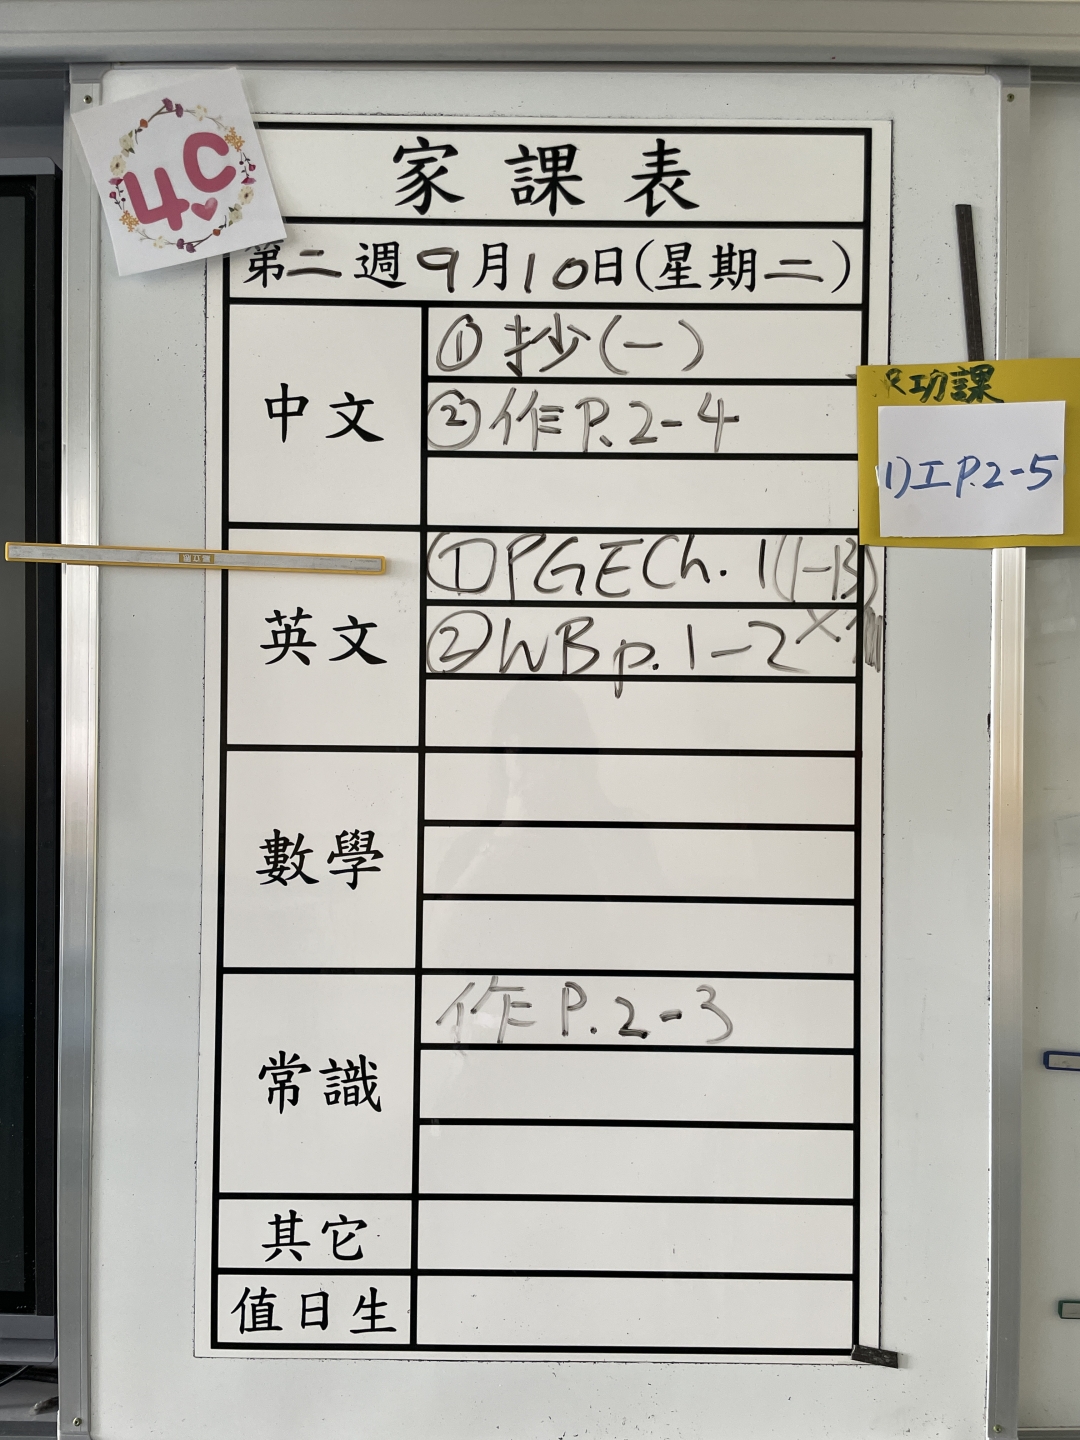 4C
家課表
第二週9月10日(星期二)
中文
① 抄(一)
② 作P.2-4
功課
1)工P.2-5
英文
① PGE Ch. 1 (1-13)
② WB p.1-2
數學
常識
作 P.2-3
其它
值日生